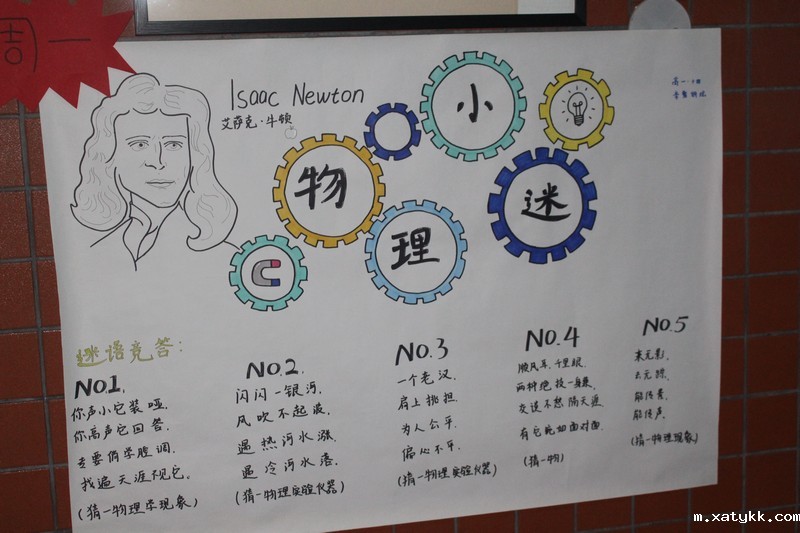 周一
Isaac Newton
艾萨克·牛顿
物理小迷
高一·十班
谜语竞答:
NO.1.
你声小它装哑.
你高声它回答.
专要俏学腔调.
找遍天涯不见它.
(猜一物理学现象)
NO.2.
闪闪一银河.
风吹不起波.
遇热河水涨.
遇冷河水落.
(猜一物理实验仪器)
NO.3
一个老汉.
肩上挑担.
为人公平.
偏心不干.
(猜一物理实验仪器)
NO.4
顺风耳.千里眼.
两种绝技一身兼.
交谈不愁隔天涯.
有它就如面对面.
(猜一物)
NO.5
来无影.
去无踪.
能传声.
(猜一物理现象)
m.xatykk.com